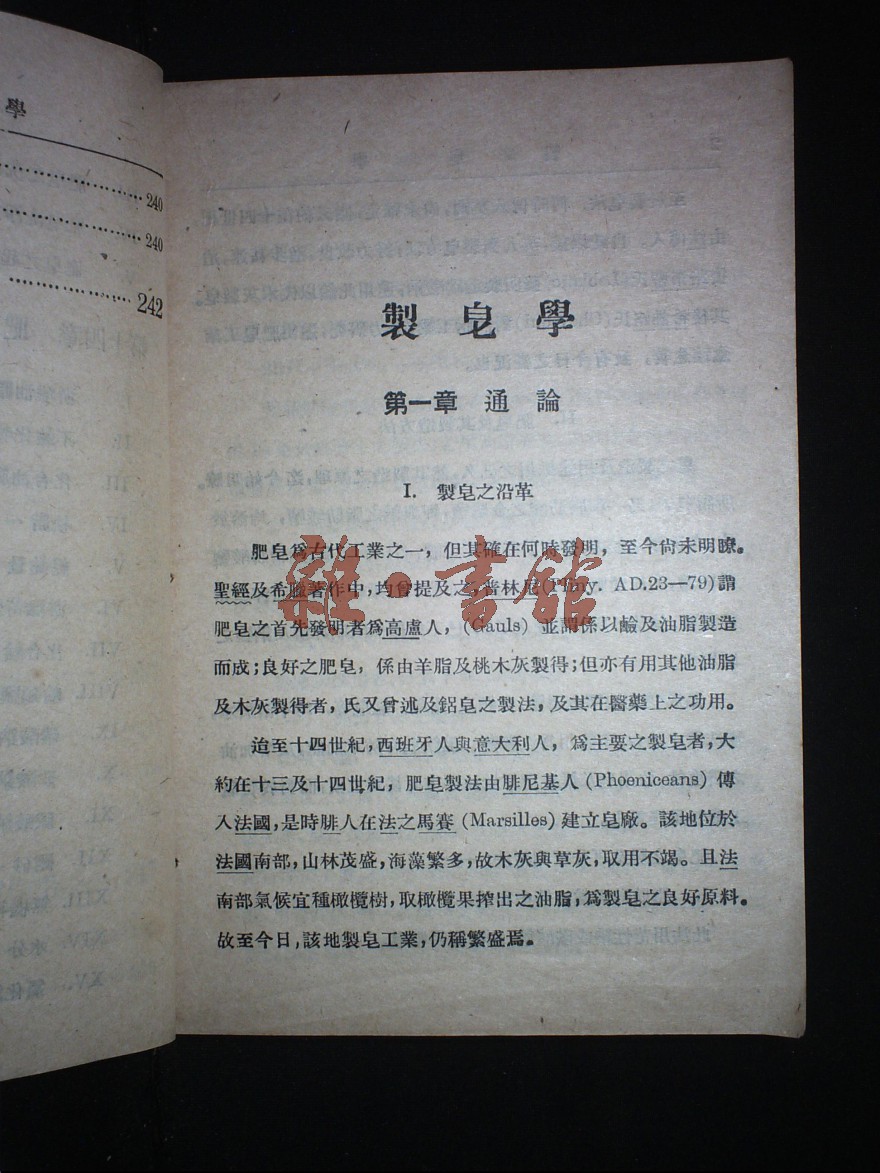 學
240
240
242
製皂學
第一章 通論
I. 製皂之沿革
肥皂爲古代工業之一，但其確在何時發明，至今尙未明瞭。
聖經及希臘著作中，均曾提及之，普林尼(Pliny. AD.23—79)謂
肥皂之首先發明者爲高盧人，(Gauls) 並謂係以鹼及油脂製造
而成；良好之肥皂，係由羊脂及桃木灰製得；但亦有用其他油脂
及木灰製得者，氏又曾述及鋁皂之製法，及其在醫藥上之功用。
迨至十四世紀，西班牙人與意大利人，爲主要之製皂者，大
約在十三及十四世紀，肥皂製法由腓尼基人 (Phoeniceans) 傳
入法國，是時腓人在法之馬賽 (Marsilles) 建立皂廠。該地位於
法國南部，山林茂盛，海藻繁多，故木灰與草灰，取用不竭。且法
南部氣候宜種橄欖樹，取橄欖果搾出之油脂，爲製皂之良好原料。
故至今日，該地製皂工業，仍稱繁盛焉。
雜·書館